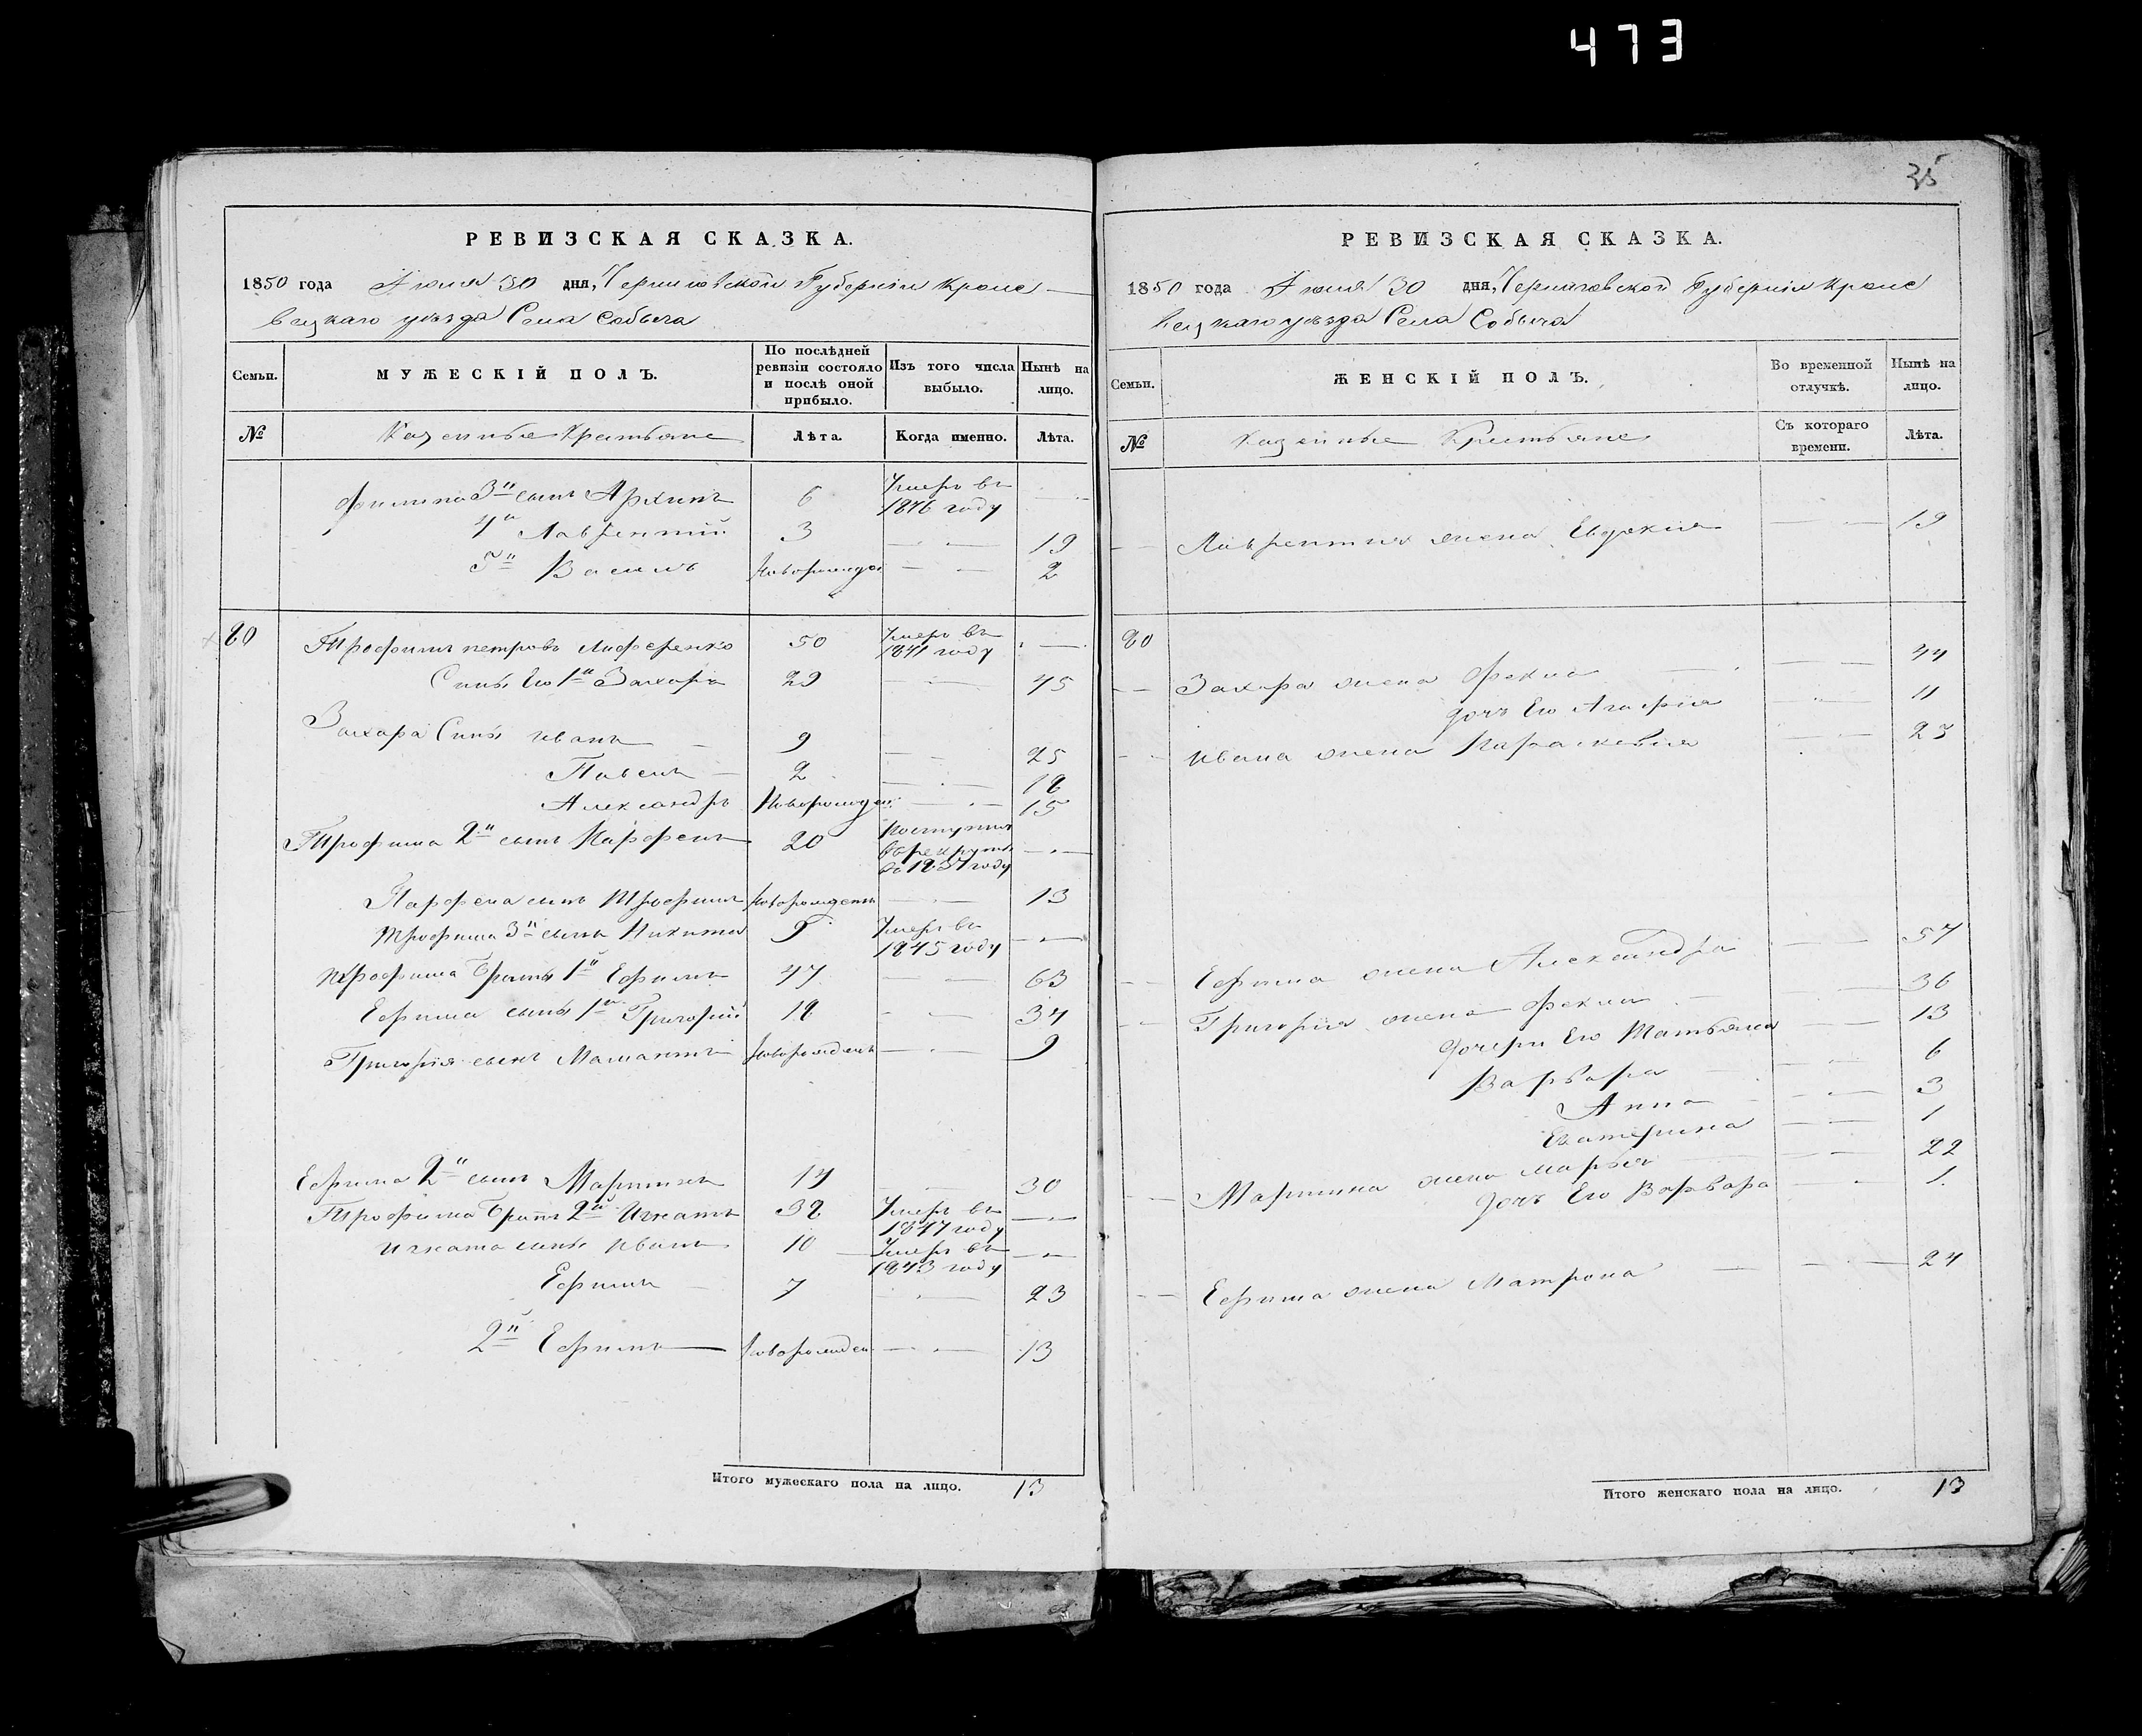 473
35
РЕВИЗСКАЯ СКАЗКА.
1850 года Июля 30 дня, Черниговской Губернiи Кроле
вецкаго уезда Села Собыча
Семьи.
МУЖЕСКІЙ ПОЛЪ.
По послѣдней ревизіи состояло и послѣ оной прибыло.
Изъ того числа выбыло.
Нынѣ на лицо.
№
Казенные Крестьяне
Лѣта.
Когда именно.
Лѣта.
Филипа 3й сынъ Архипъ 6 Умеръ въ 1846 году — —
4й Лаврентiй 3 — — 19
5й Василь Новорожден — — 2
80 Трофимъ петровъ 50 Умеръ въ 1841 году — —
Сины Его 1й Захаръ 29 — — 45
Захара Сины иванъ — 9 — — 25
Павелъ — 2 — — 18
Александръ Новорожден — — 15
Трофима 2й сынъ Парфенъ 20 Поступил в рекруты въ 1837 году — —
Парфена сынъ Трофимъ Новорожденъ — — 13
Трофима 3й сынъ Никита Умеръ въ 1845 году — —
Трофима Братъ 1й Ефимъ 47 — — 63
Ефима сыны 1й Григорiй 18 — — 34
Григорiя сынъ Новорожденъ — — 9
Ефима 2й сынъ Мартинъ 14 — — 30
Трофима Братъ 2й Игнатъ 32 Умеръ въ 1847 году — —
Игната сины иванъ 10 Умеръ въ 1843 году — —
Ефимъ — 7 — — 23
2й Ефимъ — Новорожден — — 13
Итого мужескаго пола на лицо. 13
РЕВИЗСКАЯ СКАЗКА.
1850 года Июля 30 дня, Черниговской Губернiи Кроле
вецкаго уезда Села Собыча
Семьи.
ЖЕНСКІЙ ПОЛЪ.
Во временной отлучкѣ.
Нынѣ на лицо.
№
Казенные Крестьяне
Съ котораго времени.
Лѣта.
— — Лаврентия жена Евдокия — — 19
80
— — Захара жена Фекла — — 44
дочъ Его Агафiя — — 11
— — ивана жена Параскевия — — 23
— — Ефима жена Александра — — 57
— — Григорiя жена Фекла — — 36
дочери Его Татьяна — — 13
Варвара — — 6
Анна — — 3
Екатерина — — 1
— — Мартина жена марья — — 22
дочъ Его Варвара — — 1
— — Ефима жена Матрона — — 24
Итого женскаго пола на лицо. 13